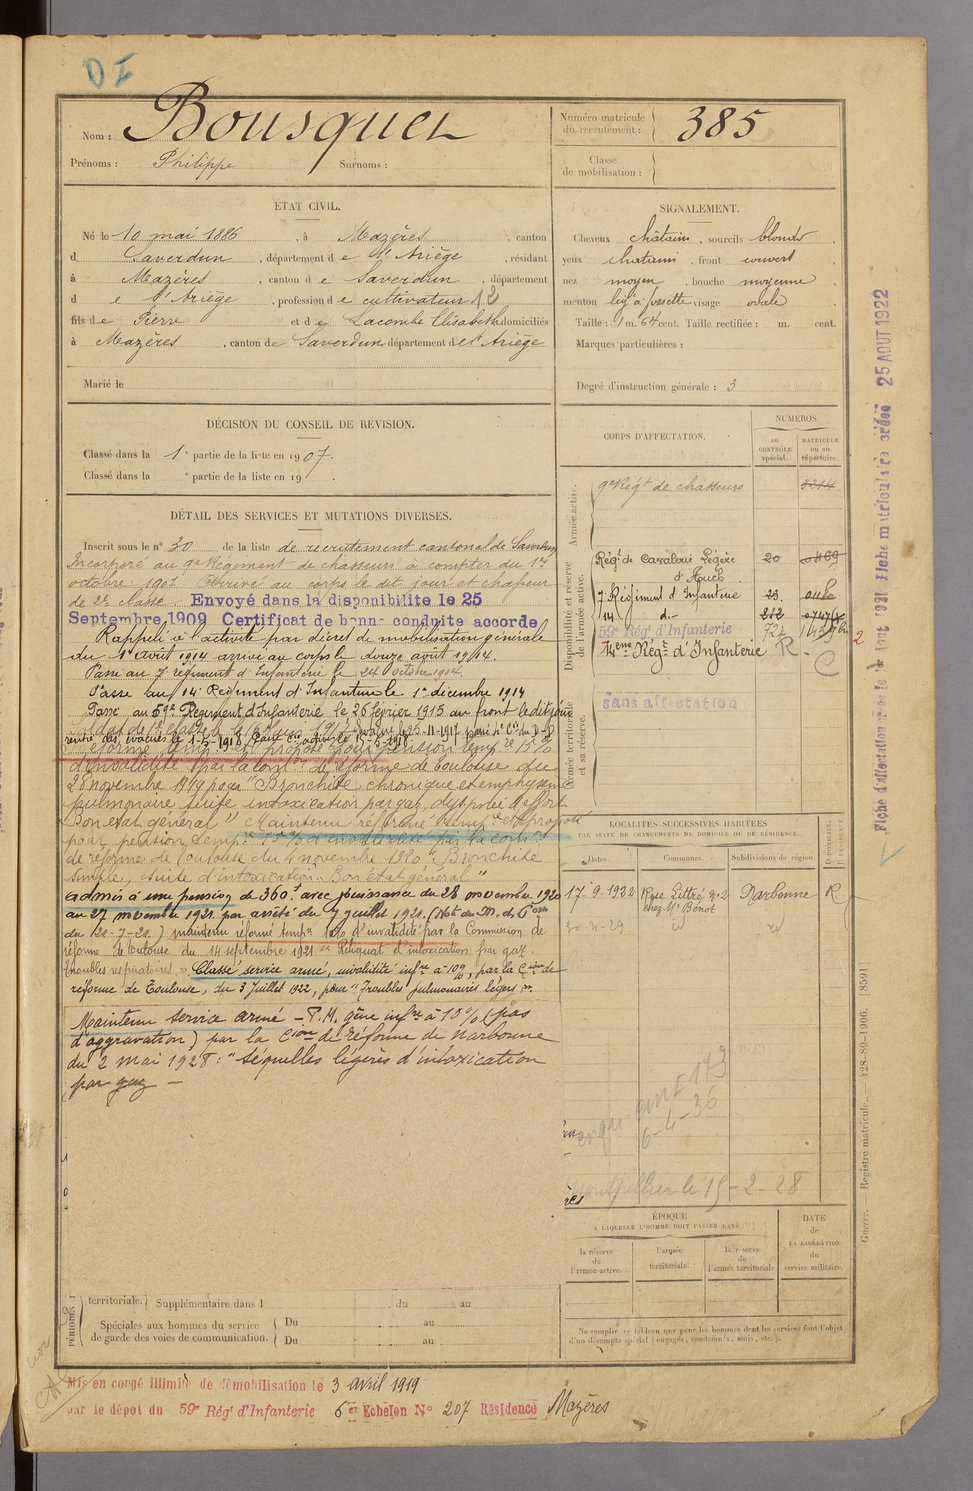 D I
Nom : Bousquet
Prénoms : Philippe Surnoms :
Numéro matricule du recrutement : 385
Classe de mobilisation :
ETAT CIVIL.
Né le 10 mai 1886, à Mazères, canton
d Saverdun, département de l'Ariège, résidant
à Mazères, canton de Saverdun, département
de l'Ariège, profession de cultivateur 12
fils de Pierre et de Lacombe Elisabeth domiciliés
à Mazères, canton de Saverdun, département de l'Ariège
Marié le
SIGNALEMENT.
Cheveux châtains, sourcils blonds
yeux chatains, front couvert
nez moyen, bouche moyenne
menton lég à fossette visage ovale
Taille : 1 m. 64 cent. Taille rectifiée : m. cent.
Marques particulières :
Degré d'instruction générale : 3
DÉCISION DU CONSEIL DE REVISION.
Classé dans la 1e partie de la liste en 1907.
Classé dans la e partie de la liste en 19
DÉTAIL DES SERVICES ET MUTATIONS DIVERSES.
Inscrit sous le n° 30 de la liste de recrutement cantonal de Saverdun
Incorporé au 9e Régiment de chasseurs à compter du 1er
octobre 1907. Arrivé au corps le dit jour et chasseur
de 2e classe. Envoyé dans la disponibilité le 25
Septembre 1909 Certificat de bonne conduite accordé
Rappelé à l'activité par décret de mobilisation générale
du 1er août 1914 arrivé au corps le douze août 1914.
Passé au 7e régiment d'Infanterie le 24 octobre 1914
Passé au 14e Régiment d'Infanterie le 1er décembre 1914
Passé au 59e Régiment d'Infanterie le 26 février 1915 au front le dit jour
évacué le 25-11-1917
Réformé temp. proposé pour pension temp. 15%
d'invalidité par la Com. de réforme de Toulouse du
28 novembre 1919 pour "Bronchite chronique et emphysème
pulmonaire suite intoxication par gaz, dyspnée d'effort
Bon état général" Maintenu réformé temp. et proposé
pour pension temp. 15% d'invalidité par la Com.
de réforme de Toulouse du 4 novembre 1920 "Bronchite
simple, suite d'intoxication - Bon état général"
admis à une pension de 360f avec jouissance du 28 novembre 1920
au 27 novembre 1921 par arrêté du 7 juillet 1921. (Not. du M. des Pons
du 120-7-21.) maintenu réformé temp. 10% d'invalidité par la Commission de
réforme de Toulouse du 14 septembre 1921 "Reliquat d'intoxication par gaz.
Troubles respiratoires." Classé service armé, invalidité infre à 10%, par la Cion de
réforme de Toulouse, du 3 Juillet 1922, pour "Troubles pulmonaires légers".
Maintenu service armé - P.M. gêne infre à 10% (pas
d'aggravation) par la Cion de réforme de Narbonne
du 2 mai 1928 : "séquelles légères d'intoxication
par gaz -
CORPS D'AFFECTATION.
NUMÉROS
AU CONTRÔLE spécial.
MATRICULE OU AU répertoire.
Armée active.
9e Régt de chasseurs
Disponibilité et réserve de l'armée active.
Régt de Cavalerie Légère 20
d'Auch
7 Régiment d'Infanterie 23.
14 d°- 212
59e Rég' d'Infanterie 724
14eme Régt d'Infanterie R. C
Armée territoriale et sa réserve.
sans affectation
LOCALITÉS SUCCESSIVES HABITÉES
PAR SUITE DE CHANGEMENTS DE DOMICILE OU DE RÉSIDENCE.
Dates. Communes. Subdivisions de région. D DOMICILE. R RÉSIDENCE.
17-9-1922 Rue Littré n°2 chez Mr Bénot Narbonne R
30-11-29 id id
6-4-36
Montpellier le 15-2-28
ÉPOQUE
A LAQUELLE L'HOMME DOIT PASSER DANS :
la réserve de l'armée active.
l'armée territoriale.
la réserve de l'armée territoriale
DATE de LA LIBÉRATION du service militaire.
Ne remplir ce tableau que pour les hommes dont les services font l'objet
d'un décompte spécial (engagés, condamnés, omis, etc.).
PÉRIODES
territoriale. Supplémentaire dans l du au
Spéciales aux hommes du service de garde des voies de communication.
Du au
Du au
Mis en congé illimité de démobilisation le 3 avril 1919
par le dépot du 59e Régt d'Infanterie 6e Echelon N° 207 Résidence Mazères
25 AOUT 1922
Guerre. Registre matricule. (28-89-1906. [8591]